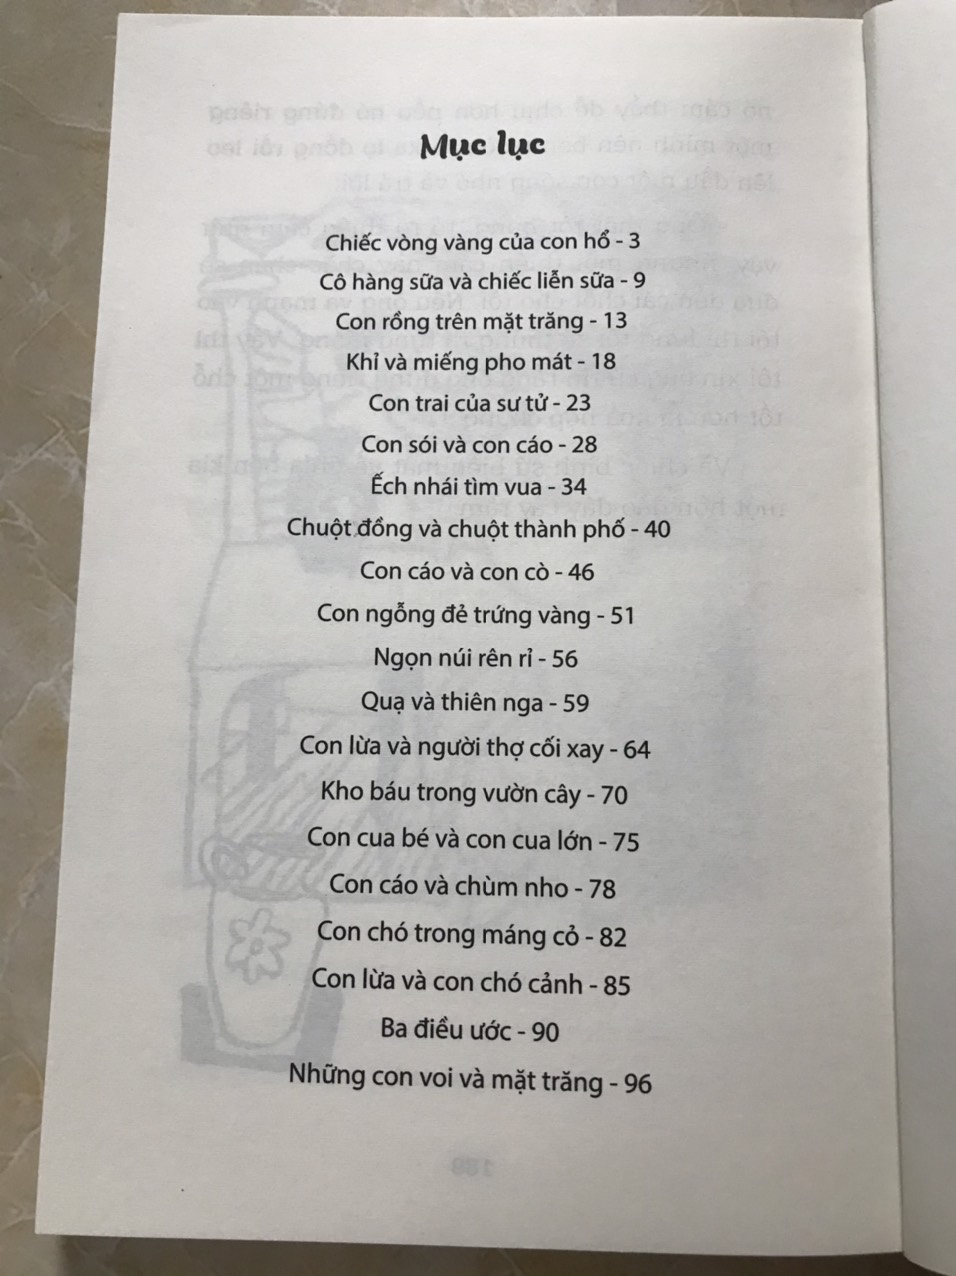 Mục lục
Chiếc vòng vàng của con hổ - 3
Cô hàng sữa và chiếc liễn sữa - 9
Con rồng trên mặt trăng - 13
Khỉ và miếng pho mát - 18
Con trai của sư tử - 23
Con sói và con cáo - 28
Ếch nhái tìm vua - 34
Chuột đồng và chuột thành phố - 40
Con cáo và con cò - 46
Con ngỗng đẻ trứng vàng - 51
Ngọn núi rên rỉ - 56
Quạ và thiên nga - 59
Con lừa và người thợ cối xay - 64
Kho báu trong vườn cây - 70
Con cua bé và con cua lớn - 75
Con cáo và chùm nho - 78
Con chó trong máng cỏ - 82
Con lừa và con chó cảnh - 85
Ba điều ước - 90
Những con voi và mặt trăng - 96